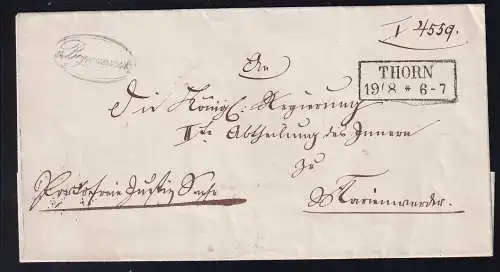 I 4559.
THORN
19/8 * 6-7
An
Die Königl: Regierung
IIte Abtheilung des Innern
zu
Marienwerder.
Portofreie Justiz Sache